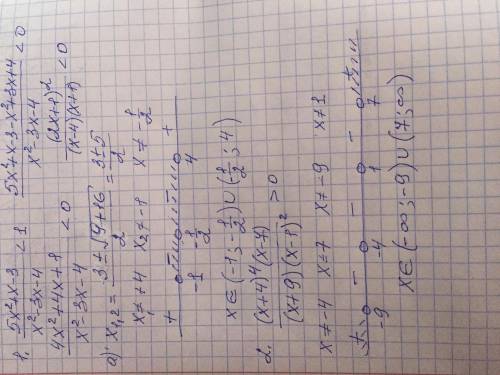 1. (5x²+x-3)/(x²-3x-4) < 1   (5x²+x-3-x²+3x+4)/(x²-3x-4) < 0
(4x²+4x+1)/(x²-3x-4) < 0   (2x+1)²/((x-4)(x+1)) < 0
a) x₁,₂ = (3±√(9+16))/2 = (3±5)/2
x₁≠+4   x₂≠-1   x≠-1/2
+   -   -   +
-1   -1/2   4
x∈(-1;-1/2)∪(1/2;4)
2. ((x+4)⁴(x-7))/((x+9)(x-1)²) > 0
x≠-4   x≠7   x≠-9   x≠1
+   -   -   -   +
-9   -4   1   7
x∈(-∞;-9)∪(7;∞)